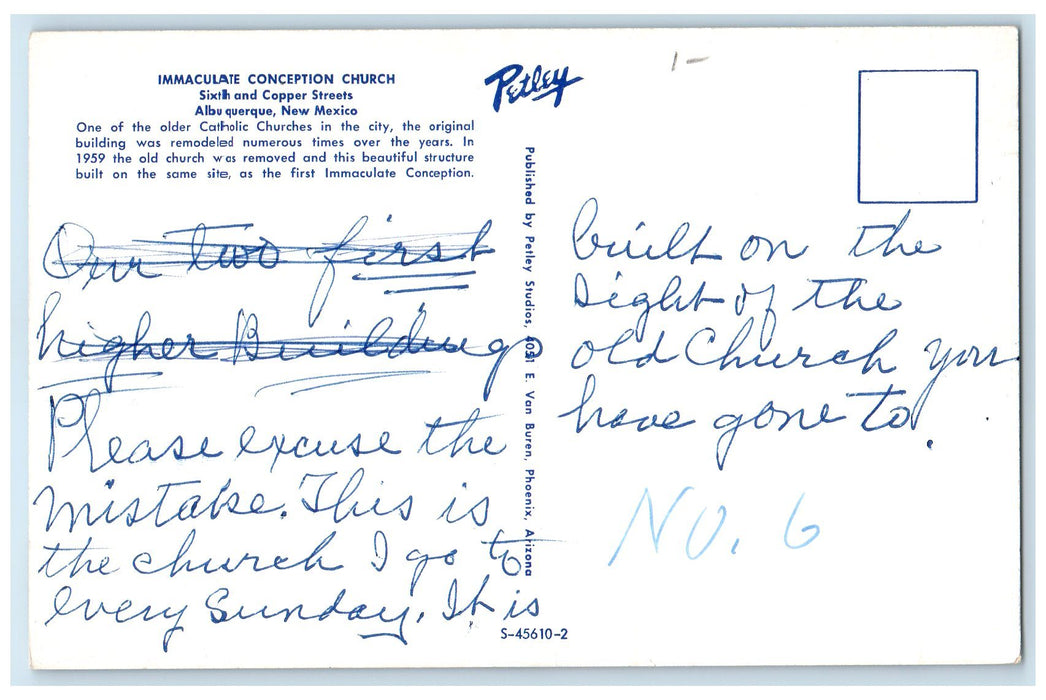 IMMACULATE CONCEPTION CHURCH
Sixth and Copper Streets
Albuquerque, New Mexico
One of the older Catholic Churches in the city, the original
building was remodeled numerous times over the years. In
1959 the old church was removed and this beautiful structure
built on the same site, as the first Immaculate Conception.
Petley
1-
Published by Petley Studios, 4051 E. Van Buren, Phoenix, Arizona
Our two first
higher Building
Please excuse the
mistake. This is
the church I go to
every Sunday. It is
built on the
sight of the
old Church you
have gone to.
NO. 6
S-45610-2